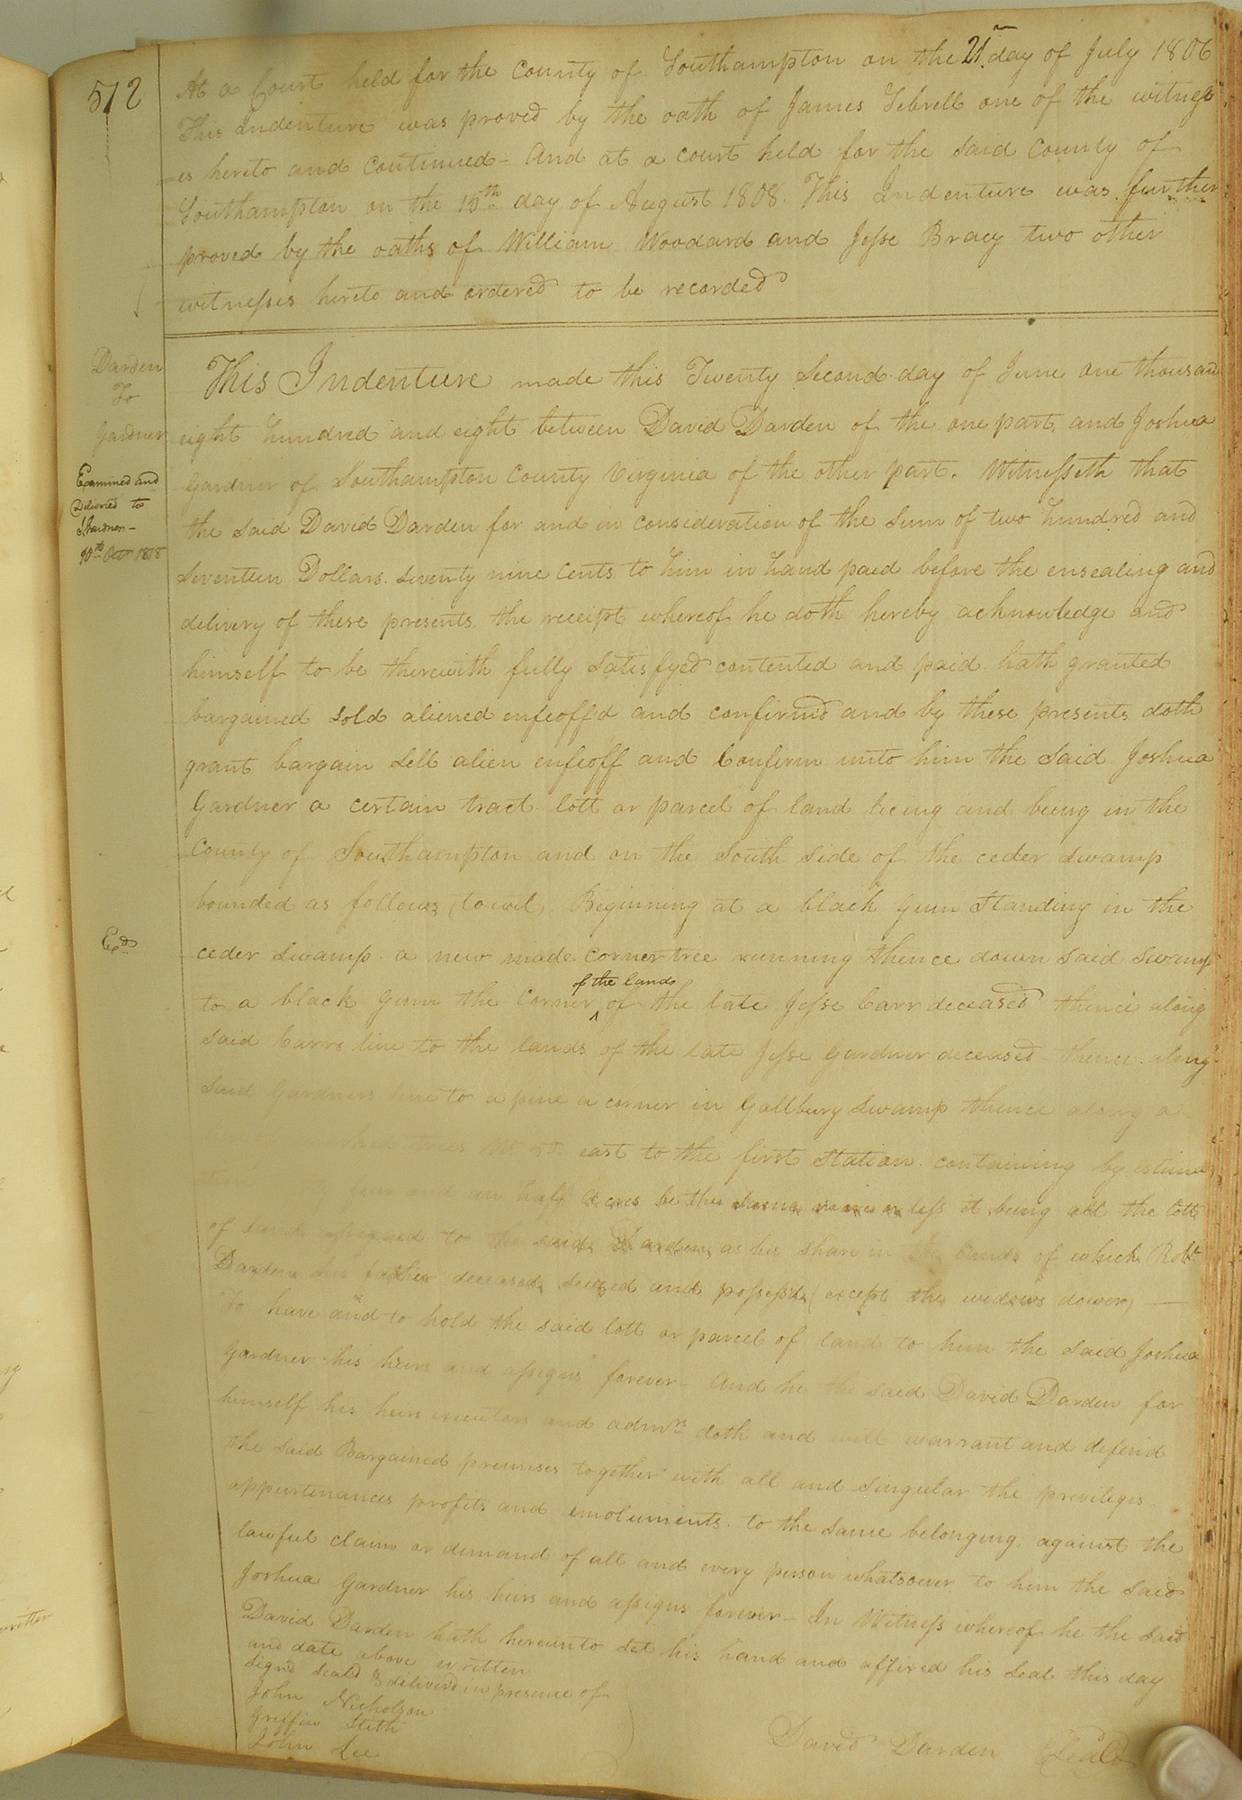 512
At a Court held for the County of Southampton on the 21 day of July 1806
This Indenture was proved by the oath of James Sebrell one of the witness
es hereto and Continued - And at a court held for the said County of
Southampton on the 15th day of August 1808. This Indenture was further
proved by the oaths of William Woodard and Jesse Bracy two other
witnesses hereto and ordered to be recorded
Darden
To
Gardner
Examined and
Delivered to
Gardner -
10th Octr 1818
This Indenture made this Twenty Second day of June one thousand
eight hundred and eight between David Darden of the one part and Joshua
Gardner of Southampton County Virginia of the other part. Witnesseth that
the said David Darden for and in consideration of the Sum of two hundred and
seventeen Dollars seventy nine cents to him in hand paid before the ensealing and
delivery of these presents the receipt whereof he doth hereby acknowledge and
himself to be therewith fully satisfyed contented and paid hath granted
bargained sold aliened enfeoff'd and confirmed and by these presents doth
grant bargain sell alien enfeoff and Confirm unto him the said Joshua
Gardner a certain tract lott or parcel of land lieing and being in the
County of Southampton and on the South side of the ceder swamp
bounded as follows (towit) Beginning at a black gum standing in the
Exd
ceder swamp a new made corner tree running thence down said swamp
of the lands
to a black gum the Corner of the late Jesse Carr deceased thence along
said Carrs line to the lands of the late Jesse Gardner deceased thence along
said Gardners line to a pine a corner in Gallbury swamp thence along a
east to the first station containing by estima
and an half acres be the same more or less it being all the lott
of land assigned to the said Darden as his share in the lands of which Robt
Darden his father deceased seized and possess'd (except the widows dower)
To have and to hold the said lott or parcel of land to him the said Joshua
Gardner his heirs and assigns forever - And he the said David Darden for
himself his heirs executors and admrs doth and will warrant and defend
the said Bargained premises together with all and singular the privileges
appurtenances profits and emoluments to the same belonging against the
lawful claim or demand of all and every person whatsoever to him the said
Joshua Gardner his heirs and assigns forever - In Witness whereof he the said
David Darden hath hereunto set his hand and affixed his seal this day
and date above written
Signd Seald & deliverd in presence of
John Nicholson
Griffin Stith
John Lee
David Darden (Seal)